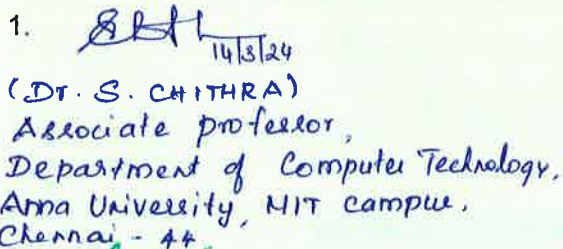 1.
14/3/24
(Dr. S. CHITHRA)
Associate professor,
Department of Computer Technology,
Anna University, MIT campus,
Chennai - 44.